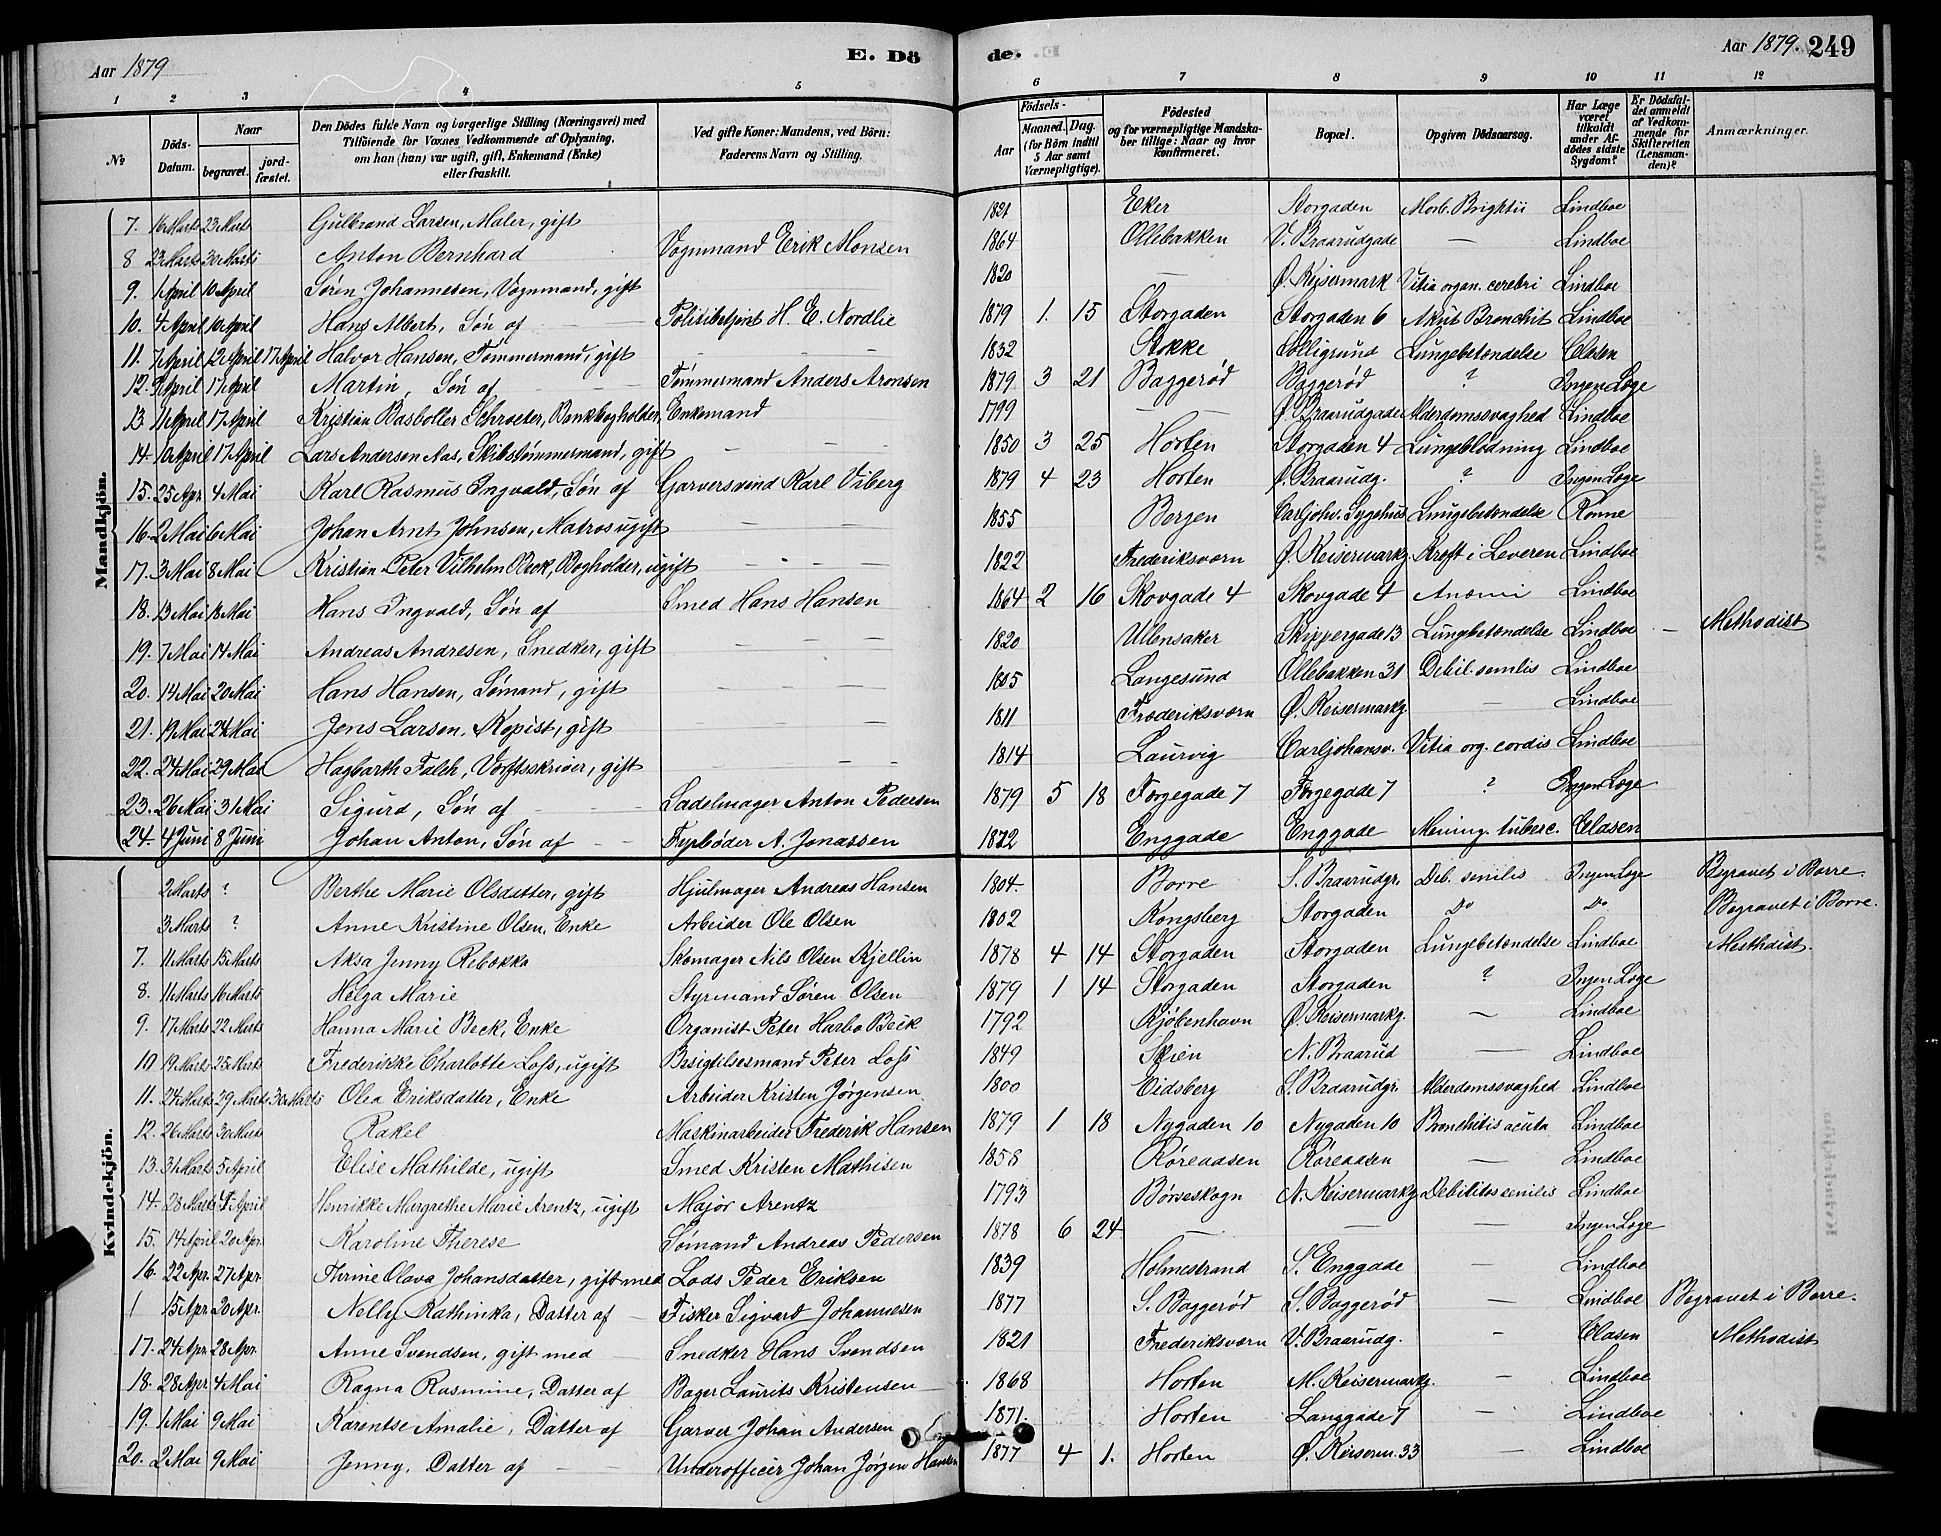 Aar 1879
E. Dö
de.
Aar 1879. 249
1 2 3 4 5 6 7 8 9 10 11 12
No
Döds-Datum.
Naar
begravet.
jord-fæstet.
Den Dödes fulde Navn og borgerlige Stilling (Næringsvei) med
Tilföiende for Voxnes Vedkommende af Oplysning,
om han (hun) var ugift, gift, Enkemand (Enke)
eller fraskilt.
Ved gifte Koner: Mandens, ved Börn:
Faderens Navn og Stilling.
Födsels-
Aar
Maaned. Dag.
(for Börn indtil
5 Aar samt
Værnepligtige).
Födested
og for værnepligtige Mandska-
ber tillige: Naar og hvor
konfirmeret.
Bopæl.
Opgiven Dödsaarsag.
Har Læge
været
tilkaldt
under Af-
dödes sidste
Sygdom?
Er Dödsfal-
det anmeldt
af Vedkom-
mende for
Skifteretten
(Lensman-
den)?
Anmærkninger.
Mandkjön.
7. 16 Marts 23 Marts Gulbrand Larsen, Maler, gift 1821 Eker Storgaden Morb. Brightii Lindboe
8 23 Marts 30 Marts Anton Bernhard Vognmand Erik Monsen 1864 Ollebakken V. Braarudgade — Lindboe
9. 1 April 10 April Søren Johannesen, Vognmand, gift 1820 — Ø. Keisermark Vitia organ. cerebri Lindboe
10. 4 April 10 April Hans Albert, Søn af Politibetjent H. E. Nordlie 1879 1. 15 Storgaden Storgaden 6 Akut Bronchit Lindboe
11. 7 April 12 April 17 April Halvor Hansen, Tømmermand, gift 1832 Stokke Solligrund Lungebetændelse Clasen
12. 9 April 17 April Martin, Søn af Tømmermand Anders Aronsen 1879 3 21 Baggerød Baggerød ? Ingen Læge
13 11 April 17 April Kristian Basbøller Schrøeter, Bankbogholder, Enkemand 1799 — Ø. Braarudgade Alderdomssvaghed Lindboe
14. 10 April 17 April Lars Andersen Aas, Skibstømmermand, gift 1850 3 25 Horten Storgaden 4 Lungeblødning Lindboe
15. 25 Apr. 4 Mai Karl Rasmus Ingvald, Søn af Garversvend Karl Viberg 1879 4 23 Horten Ø. Braarudg. ? Ingen Læge
16. 2 Mai 6 Mai Johan Arnt Johnsen, Matros ugift 1855 Bergen Carljohv. Sygehus Lungebetændelse Rønne
17. 3 Mai 8 Mai Kristian Peter Vilhelm Beck, Bogholder, ugift 1822 Frederiksværn Ø. Keisermarkg. Kræft i Leveren Lindboe
18. 13 Mai 18 Mai Hans Ingvald, Søn af Smed Hans Hansen 1864 2 16 Skovgade 4 Skovgade 4 Anæmi Lindboe
19. 7 Mai 14 Mai Andreas Andresen, Snedker, gift 1820 Ullensaker Skippergade 13 Lungebetændelse Lindboe — Methodist
20. 14 Mai 20 Mai Hans Hansen, Sømand, gift 1805 Langesund Ollebakken 31 Debil. senilis Lindboe
21. 19 Mai 24 Mai Jens Larsen, Kopist, gift 1811 Frederiksværn Ø. Keisermarkg. — Lindboe
22. 24 Mai 29 Mai Hagbarth Falch, Værftsskriver, gift 1814 Laurvig Carljohansv. Vitia org. cordis Lindboe
23. 26 Mai 31 Mai Sigurd, Søn af Sadelmager Anton Pedersen 1879 5 18 Færgegade 7 Færgegade 7 ? Ingen Læge
24. 4 Juni 8 Juni Johan Anton, Søn af Fyrbøder A. Jonassen 1872 Enggade Enggade Mening. tuberc. Clasen
Kvindekjön.
2 Marts ? Berthe Marie Olsdatter, gift Hjulmager Andreas Hansen 1804. Borre S. Braarudgr. Deb. senilis Ingen Læge Begravet i Borre.
3 Marts ? Anne Kristine Olsen, Enke Arbeider Ole Olsen 1802 Kongsberg Storgaden Do Do Begravet i Borre.
7. 11 Marts 15 Marts Aksa Jenny Rebekka Skomager Nils Olsen Kjellin 1878 4 14 Storgaden Storgaden Lungebetændelse Lindboe Methodist.
8. 11 Marts 16 Marts Helga Marie Styrmand Søren Olsen 1879 1 14 Storgaden Storgaden ? Ingen Læge
9. 17 Marts 22 Marts Hanna Marie Beck, Enke Organist Peter Harbo Beck 1792 Kjøbenhavn Ø. Keisermarkg. — Lindboe
10 19 Marts 25 Marts Frederikke Charlotte Loss, ugift Besigtelsesmand Peter Loss 1849 Skien N. Braarud — Lindboe
11. 24 Marts 29 Marts 30 Marts Olea Eriksdatter, Enke Arbeider Kristen Jørgensen 1800 Eidsberg S. Braarudgr. Alderdomssvaghed Lindboe
12. 26 Marts 30 Marts Rakel Maskinarbeider Frederik Hansen 1879 1 18 Nygaden 10 Nygaden 10 Bronchitis acuta Lindboe
13. 31 Marts 5 April Elise Mathilde, ugift Smed Kristen Mathisen 1858 Røreaasen Røreaasen — Lindboe
14. 28 Marts 4 April Henrikke Margrethe Marie Arentz, ugift Major Arentz 1793 Børseskogn N. Keisermarkg Debilitas senilis Lindboe
15. 14 April 20 Apr. Karoline Therese Sømand Andreas Pedersen 1878 6 24 — — — Ingen Læge
16. 22 Apr. 27 Apr. Thrine Olava Johansdatter, gift med Lods Peder Eriksen 1839 Holmestrand S. Enggade — Lindboe
1 15 Apr. 20 Apr. Nelly Kathinka, Datter af Fisker Sigvard Johannesen 1877 S. Baggerød S. Baggerød — Lindboe Begravet i Borre.
17. 24 Apr. 28 Apr. Anne Svendsen, gift med Snedker Hans Svendsen 1821 Frederiksværn V. Braarudg. — Clasen Methodist
18. 28 Apr 4 Mai Ragna Rasmine, Datter af Bager Laurits Kristensen 1868 Horten M. Keisermarkg. — Lindboe
19. 1 Mai 9 Mai Karentse Amalie, Datter af Garver Johan Andersen 1871. Horten Langgade 7 — Lindboe
20. 2 Mai 9 Mai Jenny, Datter af Underofficer Johan Jørgen Hansen 1877 4 1. Horten Ø. Keiserm. 33 — Lindboe